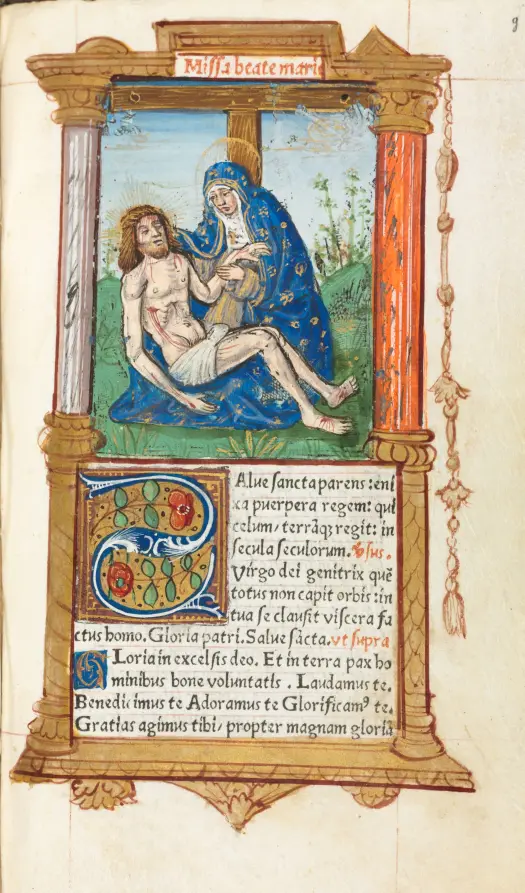 9
Missa beate marie
SAlue sancta parens : eni
xa puerpera regem: qui
celum/ terrāqȝ regit: in
secula seculorum. v̄sus.
Virgo dei genitrix quē
totus non capit orbis : in
tua se clausit viscera fa
ctus homo. Gloria patri. Salue sācta. vt supra
GLoria in excelsis deo. Et in terra pax ho
minibus bone voluntatis . Laudamus te.
Benedicimus te Adoramus te Glorificamꝰ te.
Gratias agimus tibi/ propter magnam gloriā